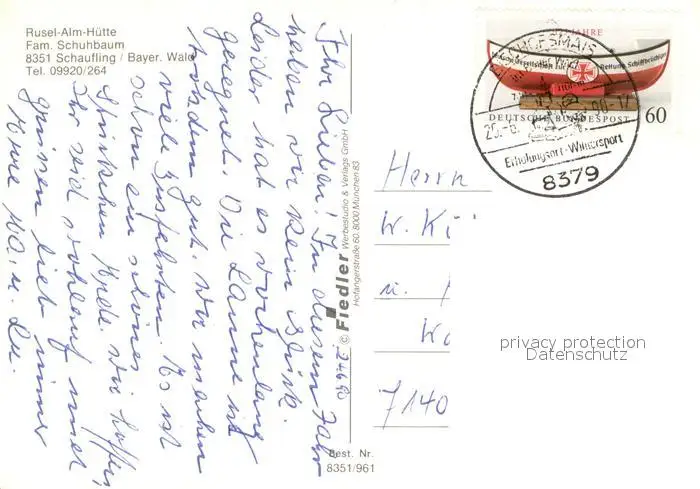 Rusel-Alm-Hütte
Fam. Schuhbaum
8351 Schaufling / Bayer. Wald
Tel. 09920/264
Ihr Lieben! In diesem Jahr
haben wir kein Glück.
Leider hat es wochenlang
geregnet. Die Laune ist
trotzdem gut. Wir machen
viele Busfahrten. Es ist
schon ein schönes
Stückchen Erde. Wir hoffen
Ihr seid wohlauf und
grüssen lieb immer
Eure Ma. u. Lu.
© Fiedler Werbestudio & Verlags GmbH
Hofangerstraße 60, 8000 München 83
Best. Nr.
8351/961
JAHRE
Deutsche Gesellschaft zur Rettung Schiffbrüchiger
DEUTSCHE BUNDESPOST
60
BISCHOFSMAIS
Erholungsort - Wintersport
8379
Herrn
W. Kü
u.
7140
privacy protection
Datenschutz